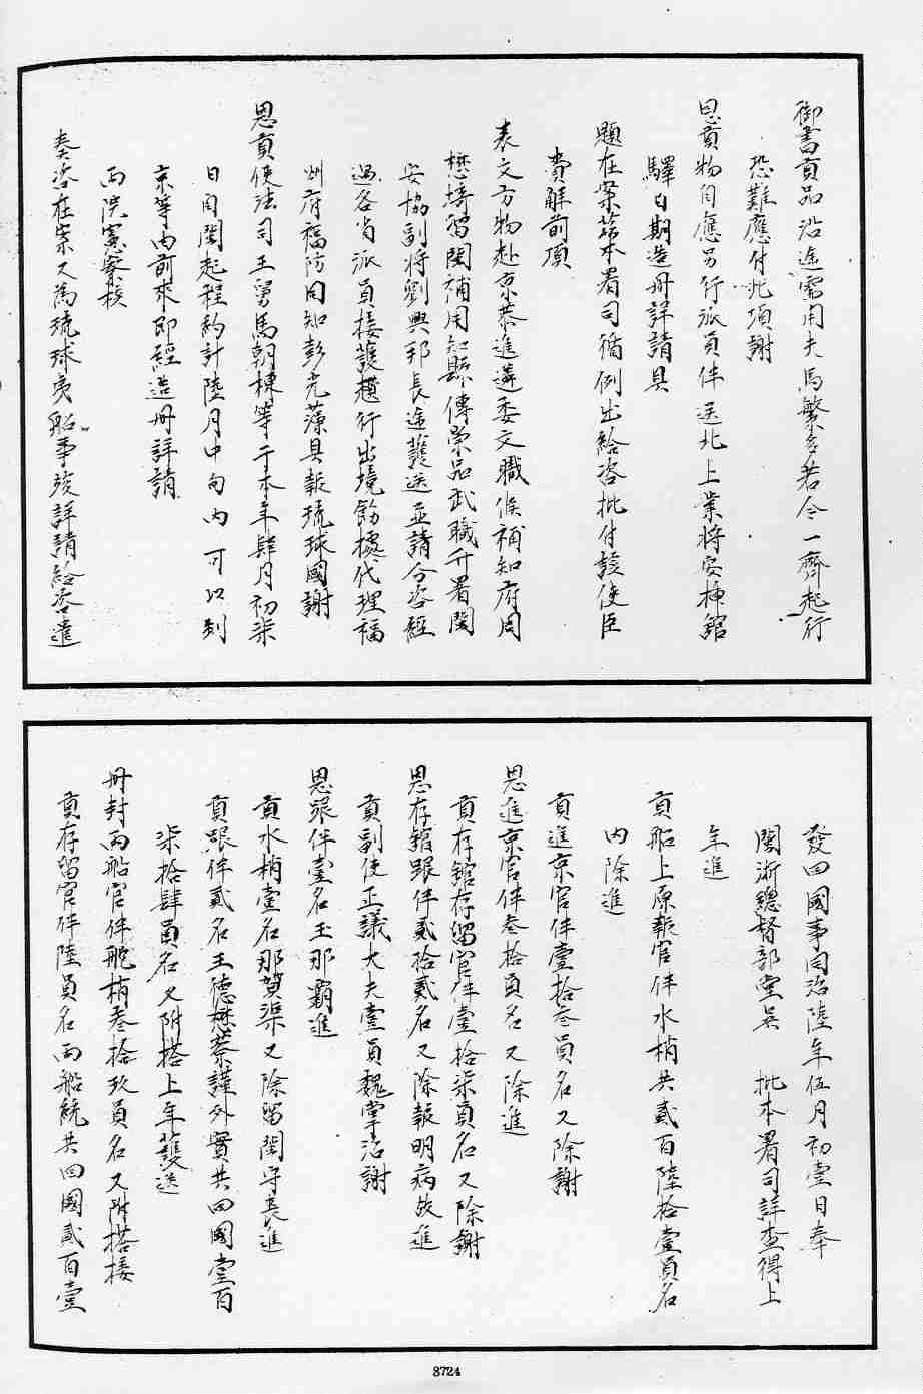 御書貢品沿途需用夫馬繁多若令一齊起行
恐難應付此項謝
恩貢物自應另行派員伴送北上業將安插館
驛日期造冊詳請具
題在案茲本署司循例出給咨批付該使臣
賫解前項
表文方物赴京恭進遴委文職候補知府周
懋琦留閩補用知縣傅榮品武職升署閩
安協副將劉興邦長途護送並請分咨經
過各省派員接護趲行出境飭據代理福
州府福防同知彭光藻具報琉球國謝
恩貢使法司王舅馬朝棟等于本年肆月初柒
日自閩起程約計陸月中旬內可以到
京等由前來即經造冊詳請
兩院憲察核
奏咨在案又為琉球夷船事竣詳請給咨遣
發回國事同治陸年伍月初壹日奉
閩浙總督部堂吳 批本署司詳查得上
年進
貢船上原報官伴水梢共貳百陸拾壹員名
內除進
貢進京官伴壹拾叁員名又除謝
恩進京官伴叁拾員名又除進
貢存館存留官伴壹拾柒員名又除謝
恩存館跟伴貳拾貳名又除報明病故進
貢副使正議大夫壹員魏掌治謝
恩跟伴壹名玉那霸進
貢水梢壹名那賀渠又除留閩守長進
貢跟伴貳名王德懋蔡謹外實共回國壹百
柒拾肆員名又附搭上年護送
冊封兩船官伴舵梢叁拾玖員名又附搭接
貢存留官伴陸員名兩船統共回國貳百壹
3724